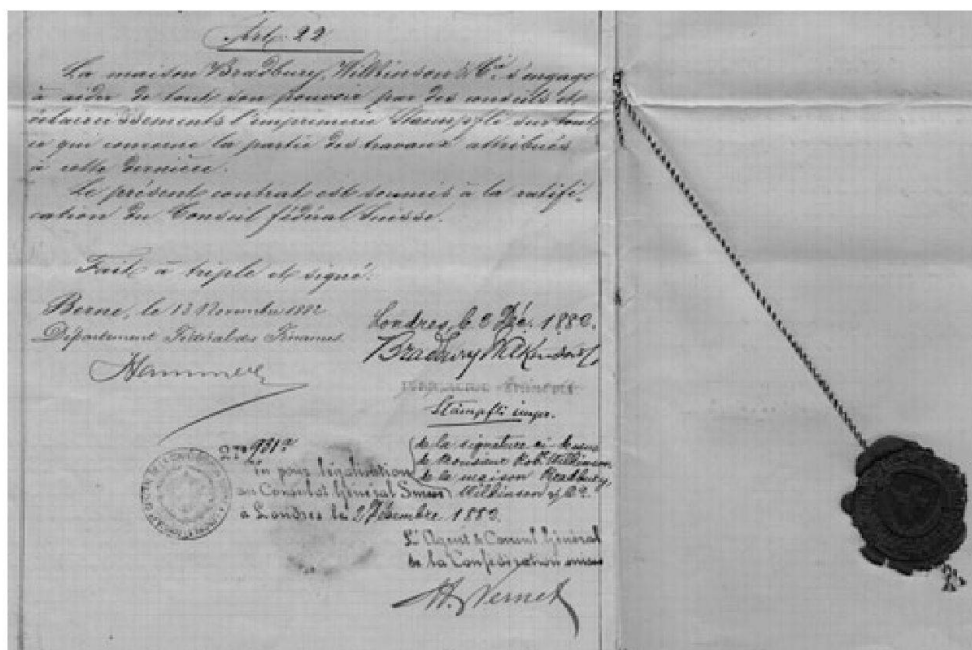 Art. 22
La maison Bradbury, Wilkinson & Cie. s'engage
à aider de tout son pouvoir par des conseils et
éclaircissements l'imprimerie Staempfli sur tout
ce qui concerne la partie des travaux attribués
à cette dernière.
Le présent contrat est soumis à la ratifi-
cation du Conseil fédéral Suisse.
Fait à triple et signé.
Berne, le 13 Novembre 1882
Département Fédéral des Finances
Hammer
Londres, le 2 Déc. 1882.
Bradbury Wilkinson & Co
Stämpfli impr.
Vu pour légalisation
au Consulat Général Suisse
à Londres le 2 Décembre 1882.
de la signature ci-dessus
de Monsieur Rob. Wilkinson
de la maison Bradbury
Wilkinson & Co.
L'Agent & Consul Général
de la Confédération suisse
H. Vernet